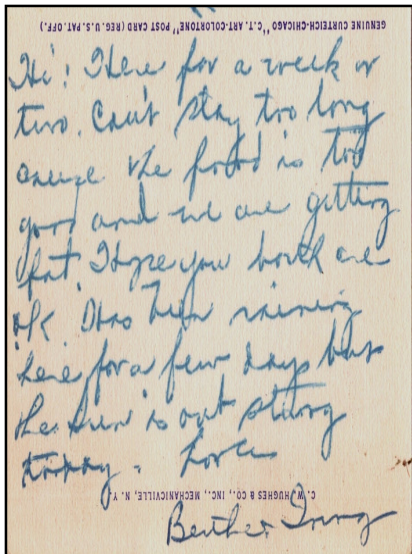 GENUINE CURTEICH-CHICAGO "C.T. ART-COLORTONE" POST CARD (REG. U.S. PAT. OFF.)
Hi! Here for a week or
two. Can't stay too long
the food is too
good and we are getting
fat. Hope you both are
ok. Has been raining
here for a few days but
the sun is out strong
today. Love
C. W. HUGHES & CO., INC., MECHANICVILLE, N. Y.
Irving